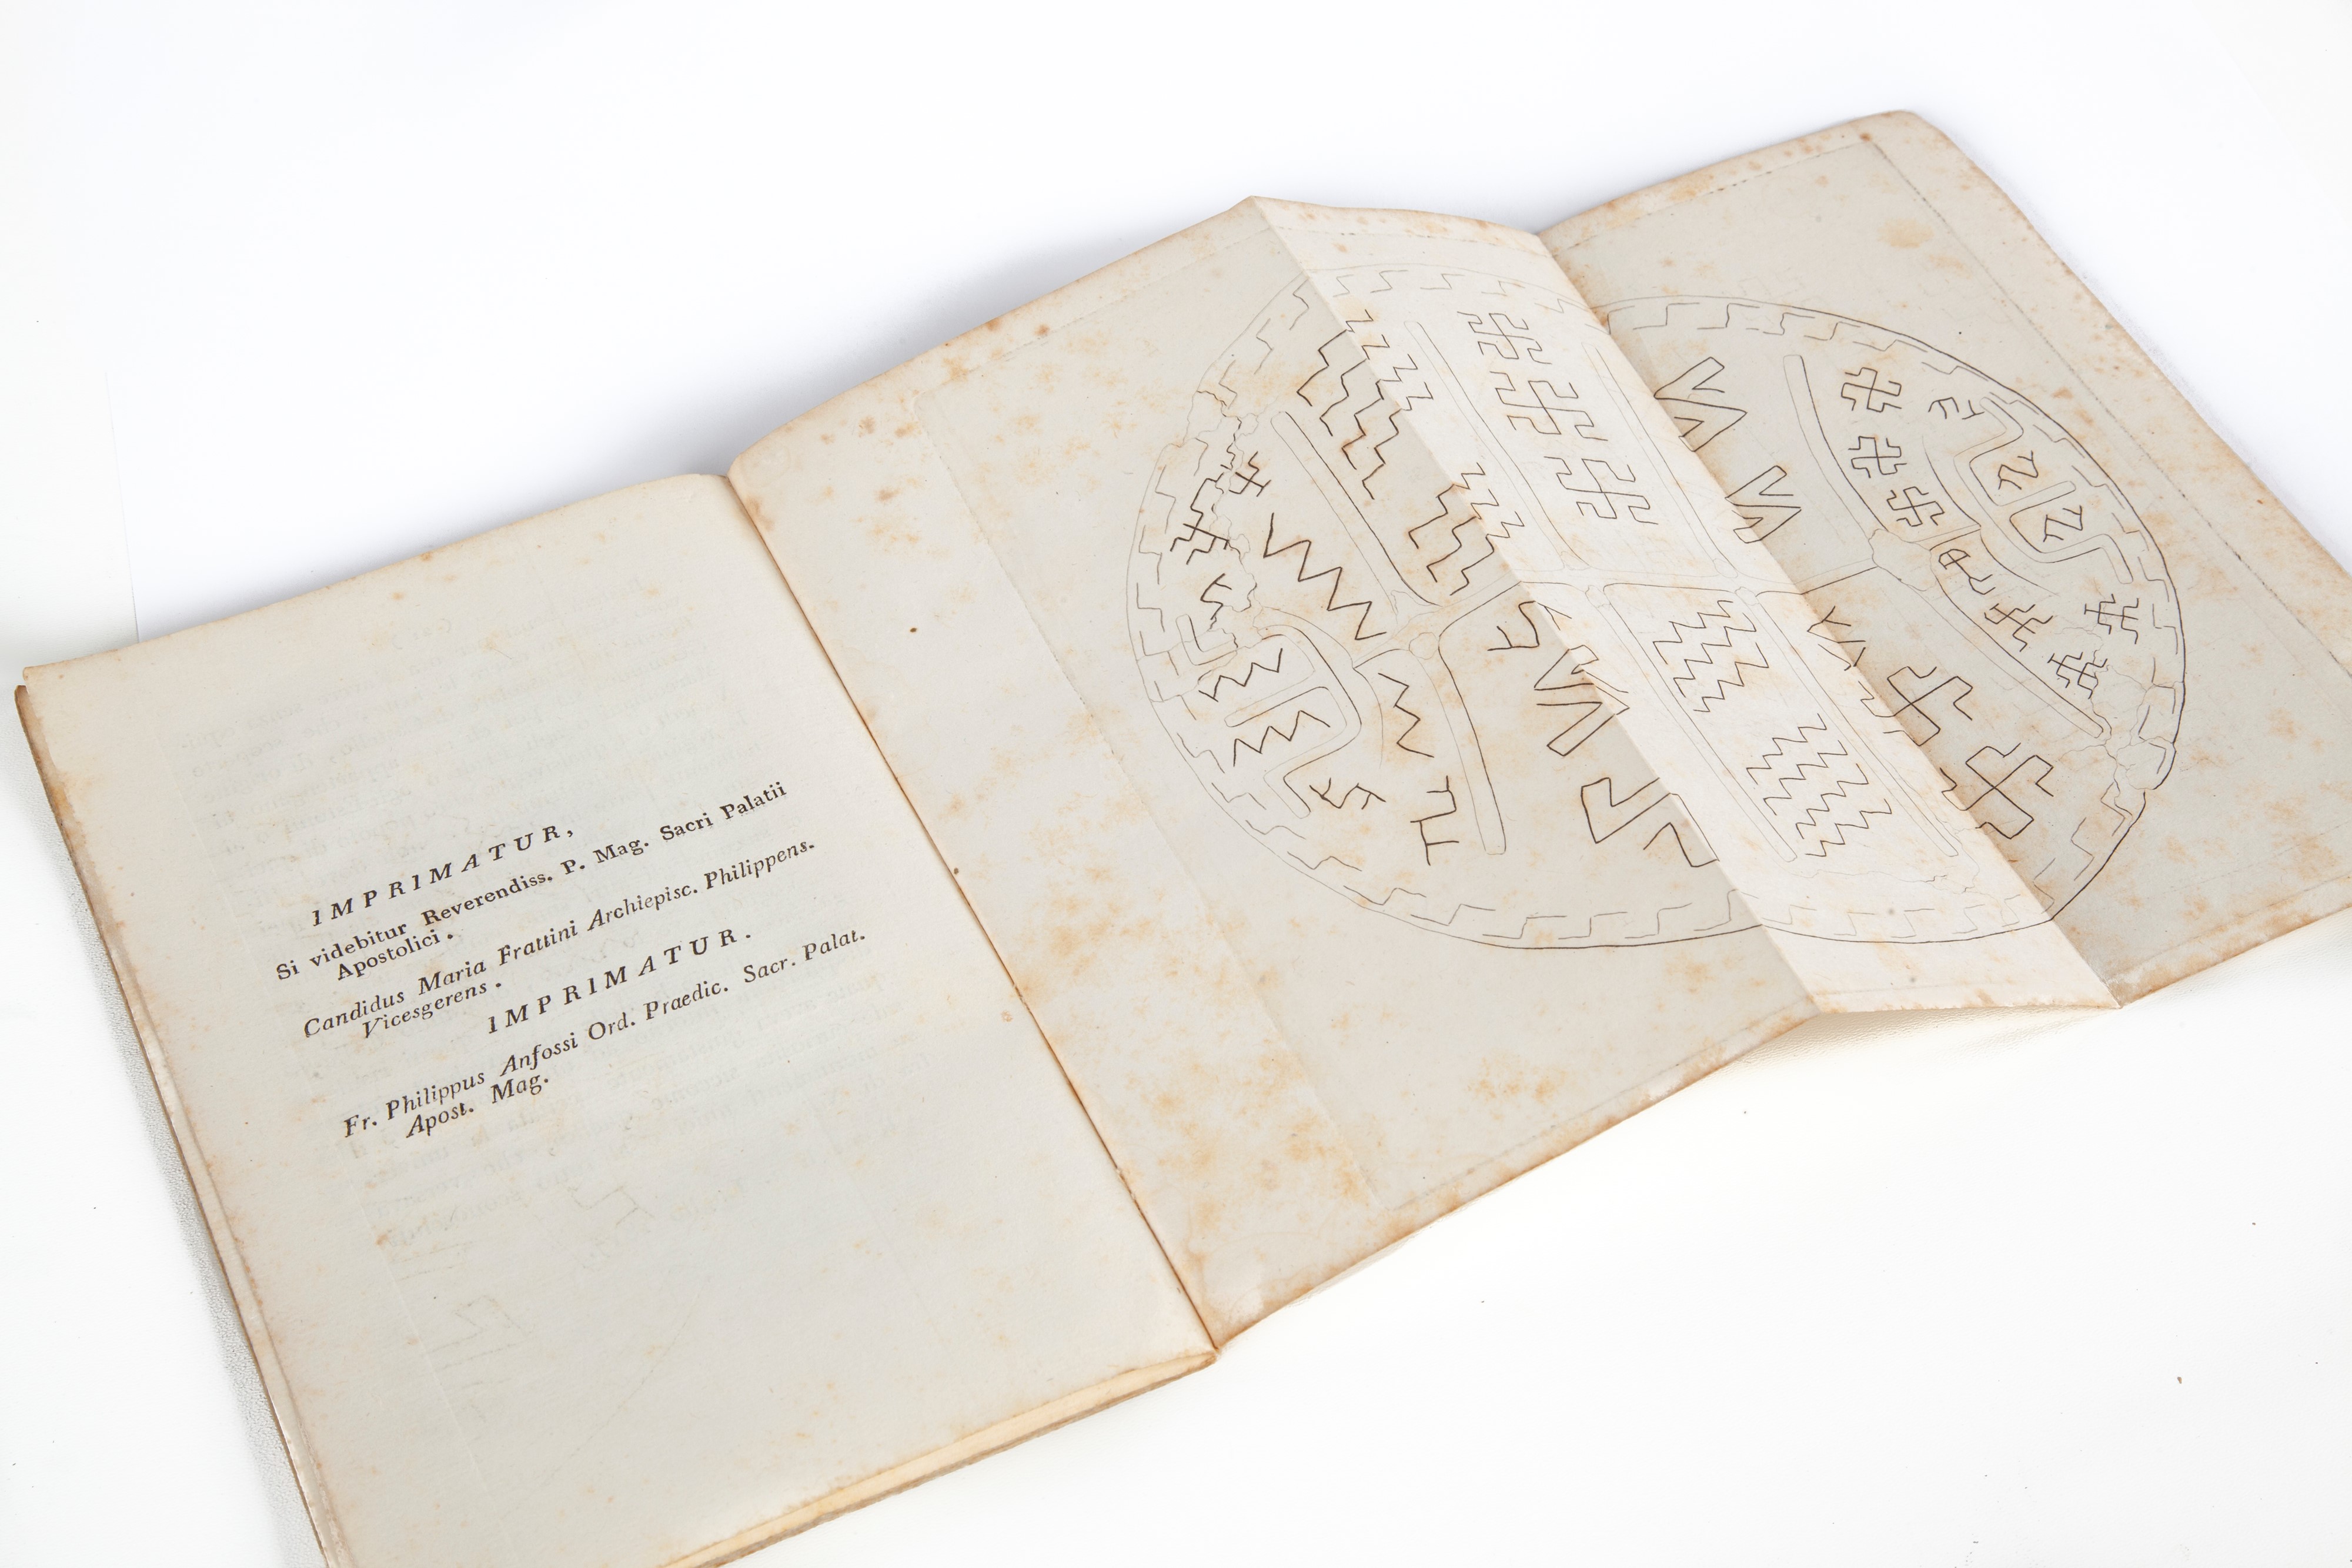 IMPRIMATUR,
Si videbitur Reverendiss. P. Mag. Sacri Palatii
Apostolici.
Candidus Maria Frattini Archiepisc. Philippens.
Vicesgerens.
IMPRIMATUR.
Fr. Philippus Anfossi Ord. Praedic. Sacr. Palat.
Apost. Mag.